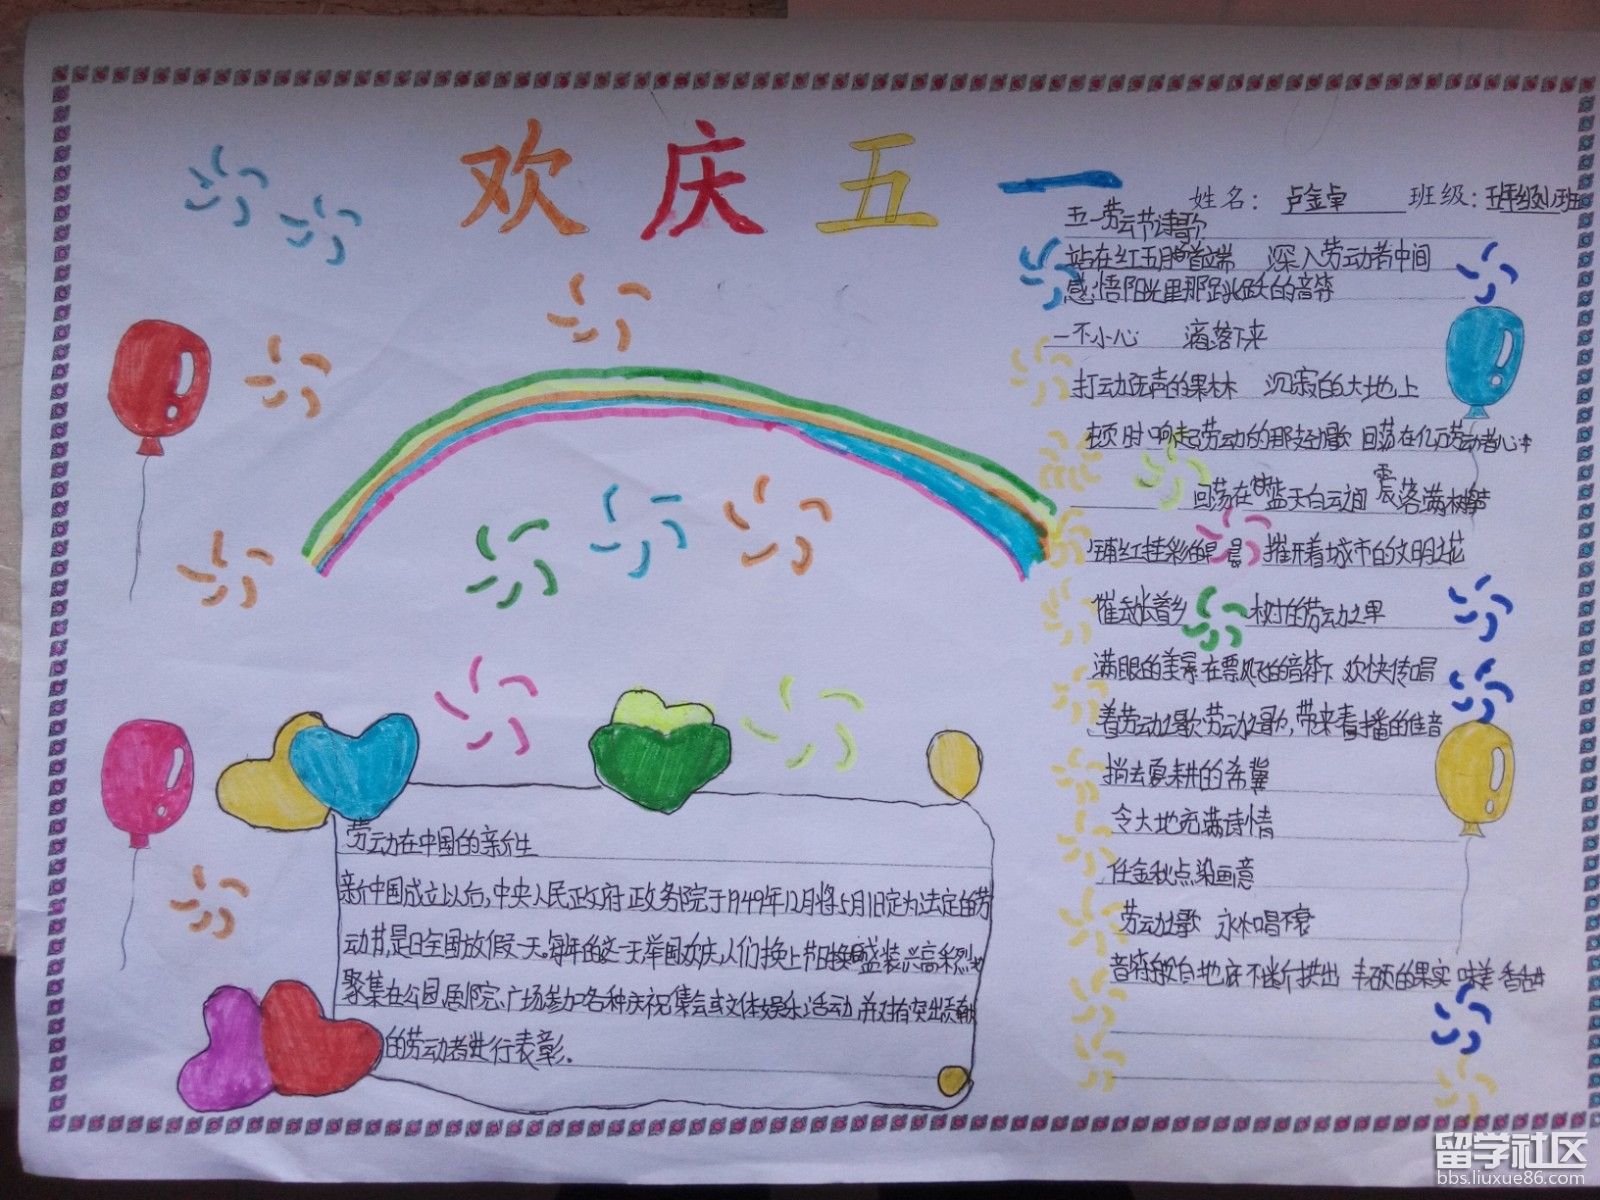 欢庆五一
姓名：卢金卓 班级：五年级1班
五一劳动节诗歌
站在红五月的首端 深入劳动者中间
感悟阳光里那跳跃的音符
一不小心 滴落下来
打动无声的果林 沉寂的大地上
顿时响起劳动的那支劲歌 回荡在亿万劳动者心中
回荡在 蓝天白云间 震落满树
铺红挂彩的 晨 摧开着城市的文明之花
催动长着乡 树的劳动之果
满眼的美景在飘飞的音符下 欢快传唱
着劳动之歌，劳动之歌，带来春播的佳音
捎去夏耕的希冀
令大地充满诗情
任金秋点染画意
劳动之歌 永不唱衰
音符般自地底不断拱出 丰硕的果实
劳动在中国的新生
新中国成立以后，中央人民政府政务院于1949年12月将5月1日定为法定的劳
动节，是日全国放假一天。每年的这一天，举国欢庆，人们换上节日 盛装，兴高采烈地
聚集在公园、剧院、广场，参加各种庆祝集会或文体娱乐活动，并对有突出贡献
的劳动者进行表彰。
留学社区
bbs.liuxue86.com